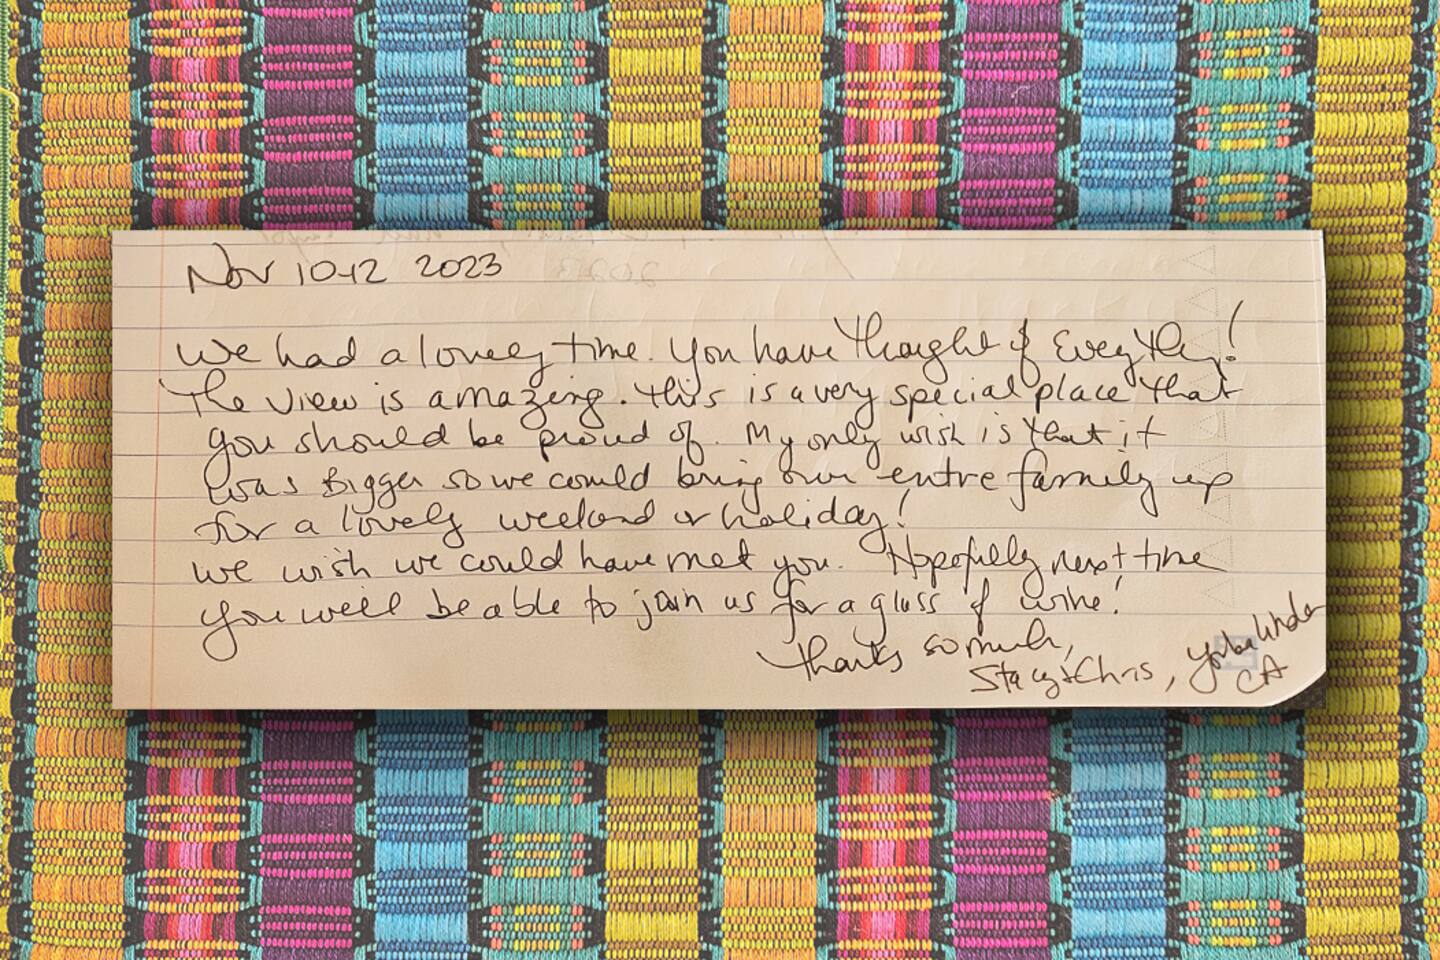 Nov 10-12 2023
We had a lovely time. You have thought of Everything!
The view is amazing. This is a very special place that
you should be proud of. My only wish is that it
was Bigger so we could bring our entire family up
for a lovely weekend or holiday!
We wish we could have met you. Hopefully next time
you will be able to join us for a glass of wine!
Thanks so much,
Stacy + Chris, Yorba Linda
CA